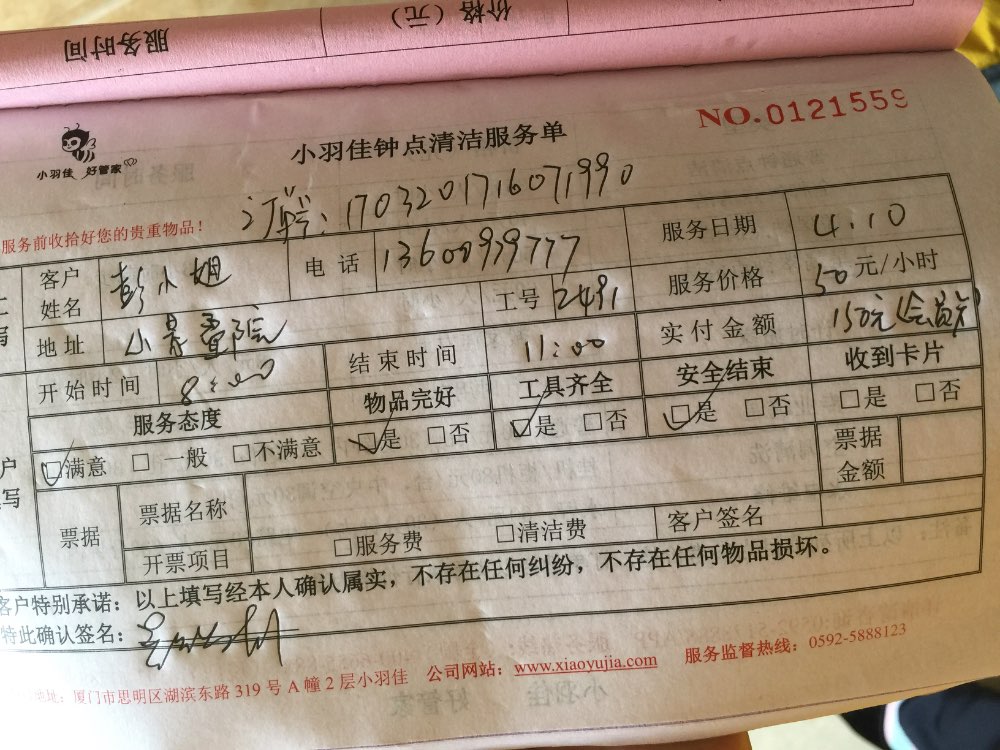 服务时间 价格（元）
NO.0121559
小羽佳 好管家
小羽佳钟点清洁服务单
订单号：1703201716071990
服务前收拾好您的贵重物品！
客户姓名 彭小姐 电话 13600939777 服务日期 4.10
地址 工号 2491 服务价格 50元/小时
开始时间 8:00 结束时间 11:00 实付金额 150元
服务态度 物品完好 工具齐全 安全结束 收到卡片
□满意 □一般 □不满意 □是 □否 □是 □否 □是 □否 □是 □否
票据 票据名称 票据金额
开票项目 □服务费 □清洁费 客户签名
客户特别承诺：以上填写经本人确认属实，不存在任何纠纷，不存在任何物品损坏。
特此确认签名：
地址：厦门市思明区湖滨东路319号A幢2层小羽佳 公司网站：www.xiaoyujia.com 服务监督热线：0592-5888123